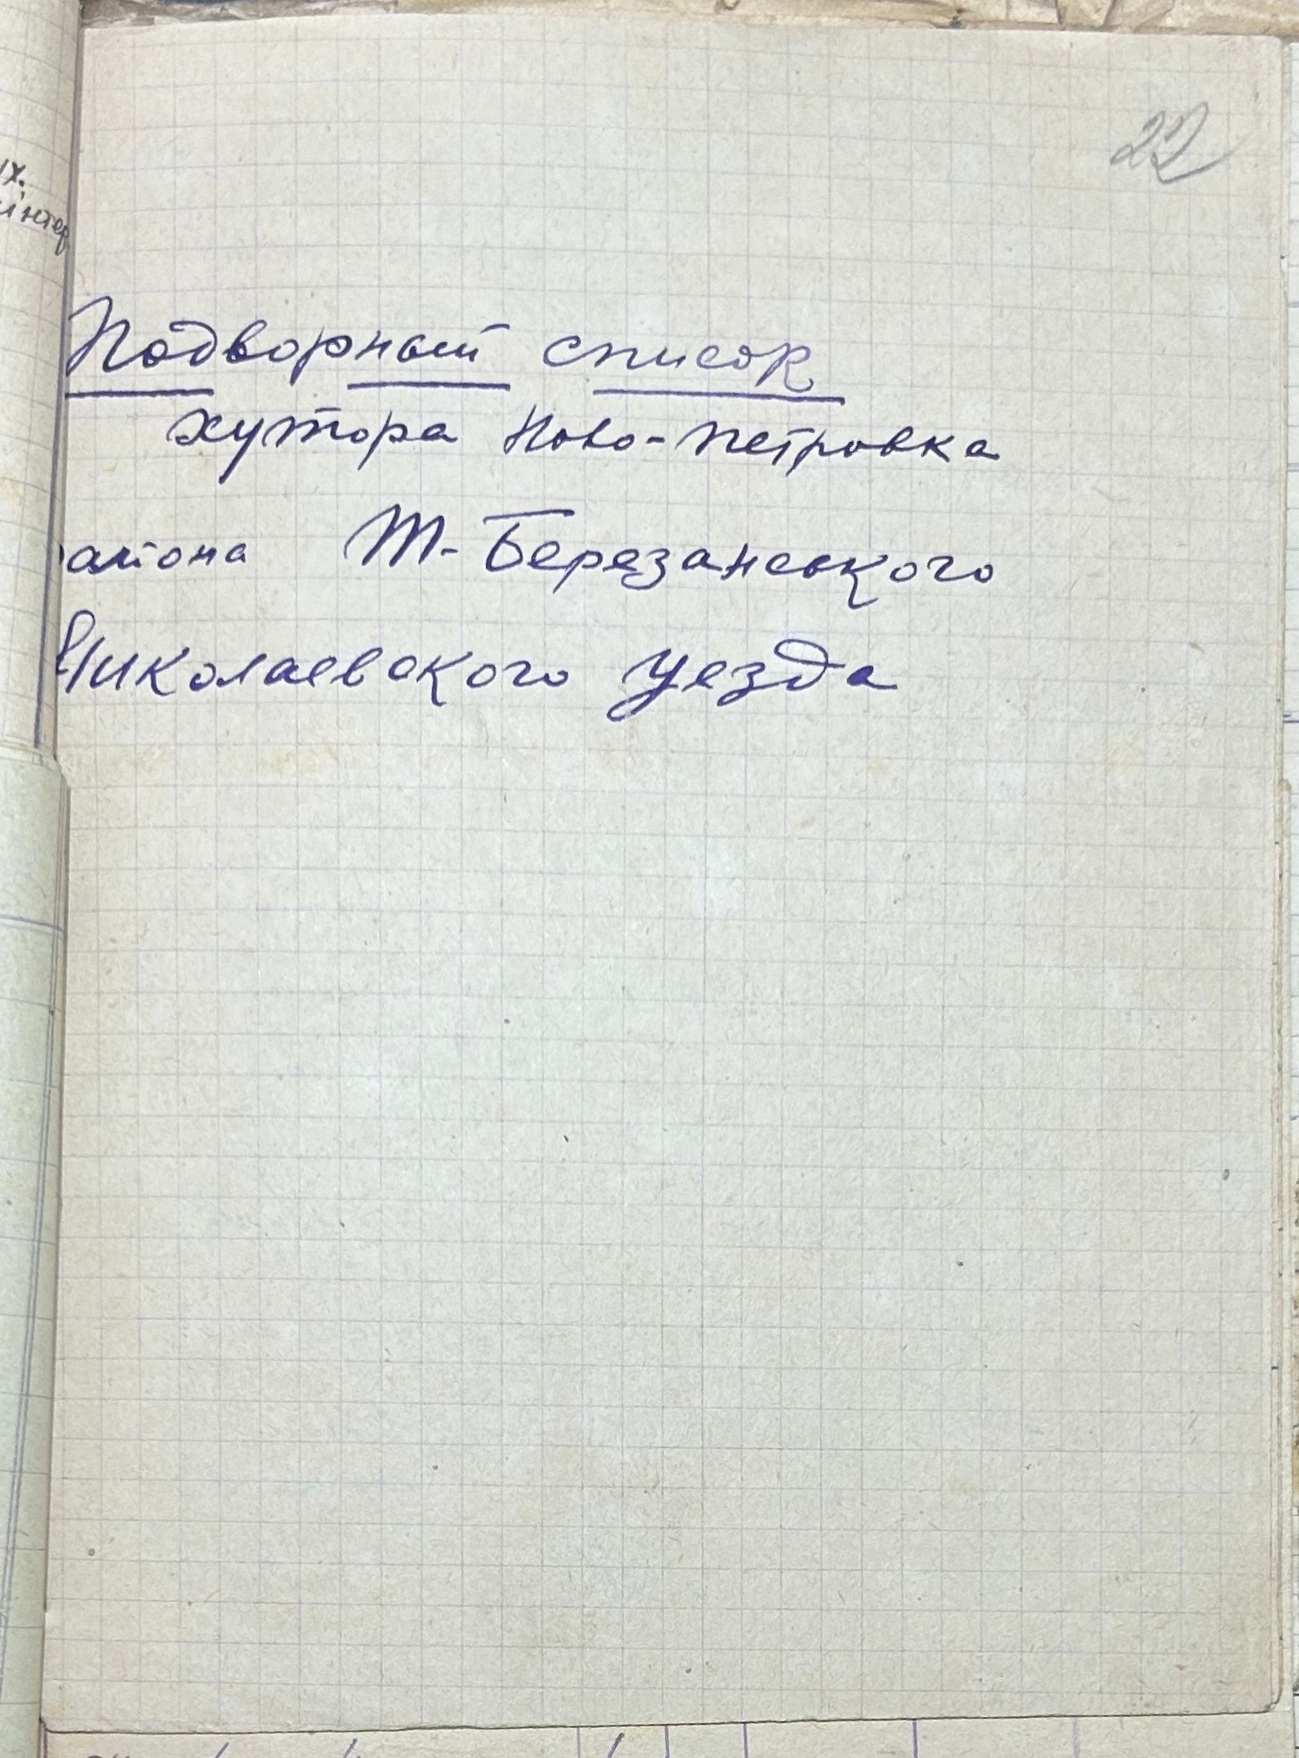 22
Подворный список
хутора Ново-Петровка
района Т-Березанського
Николаевского уезда